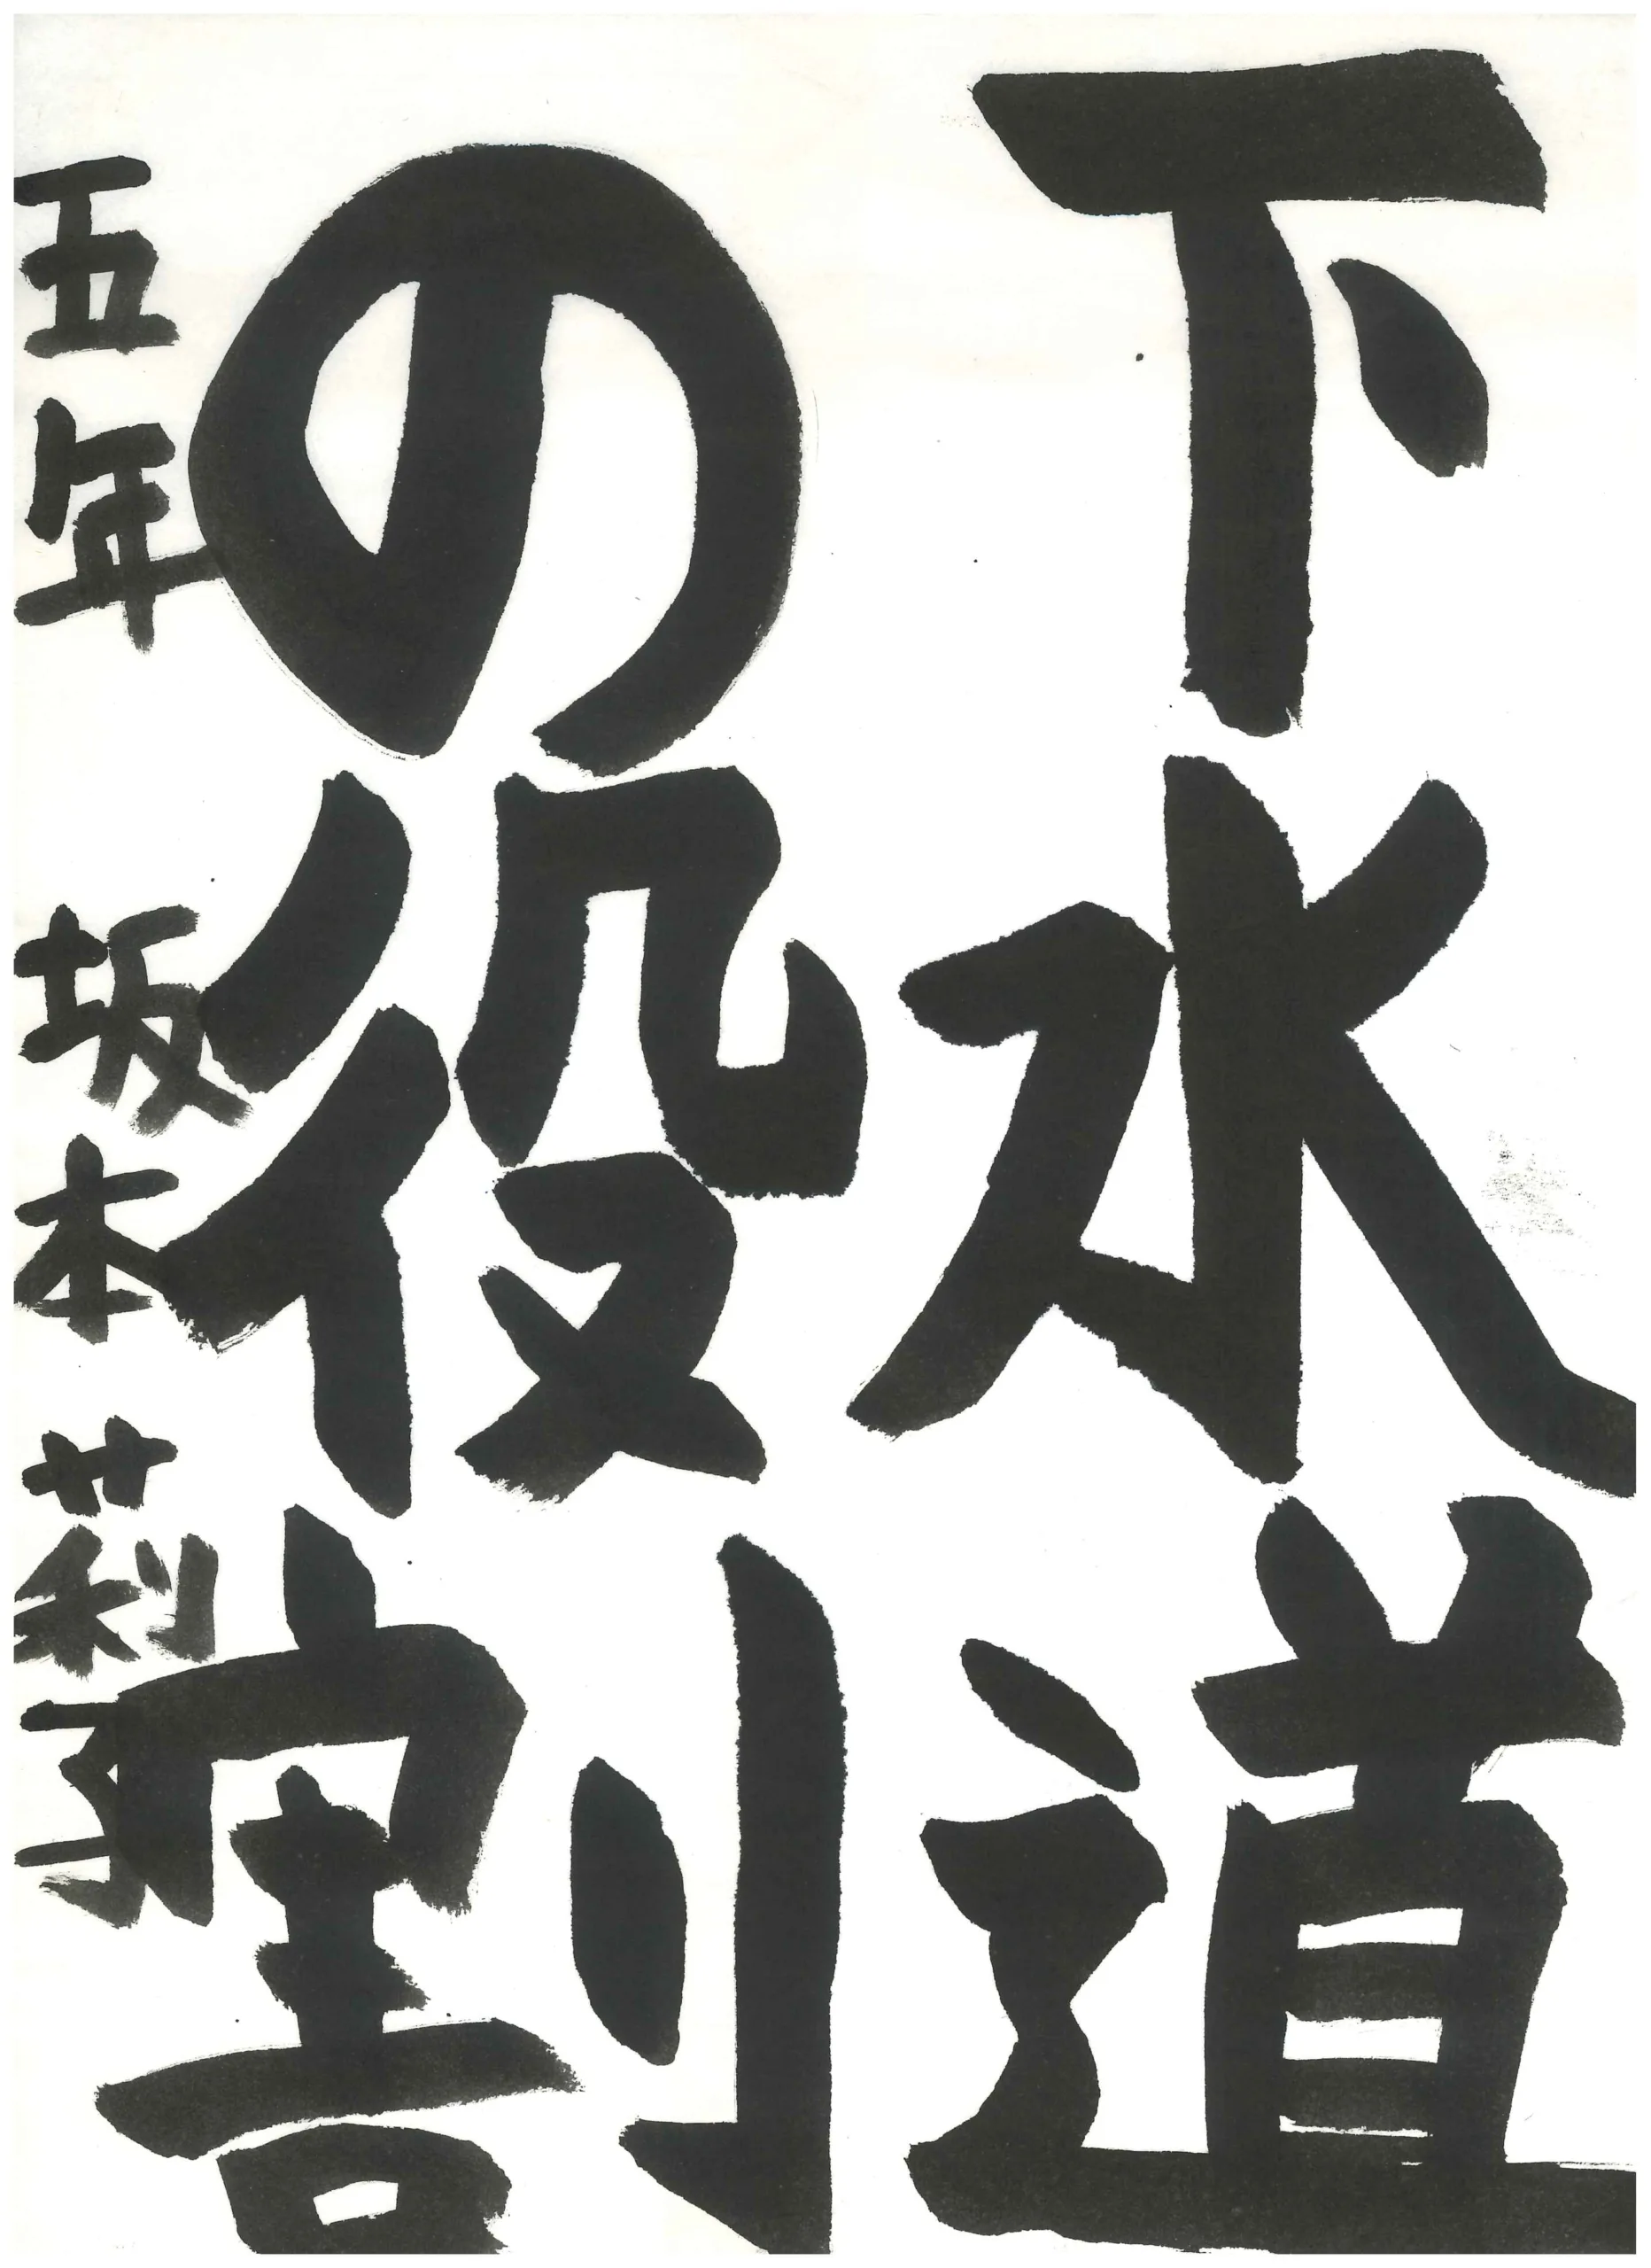 下水道
の役割
五年 坂本 莉子